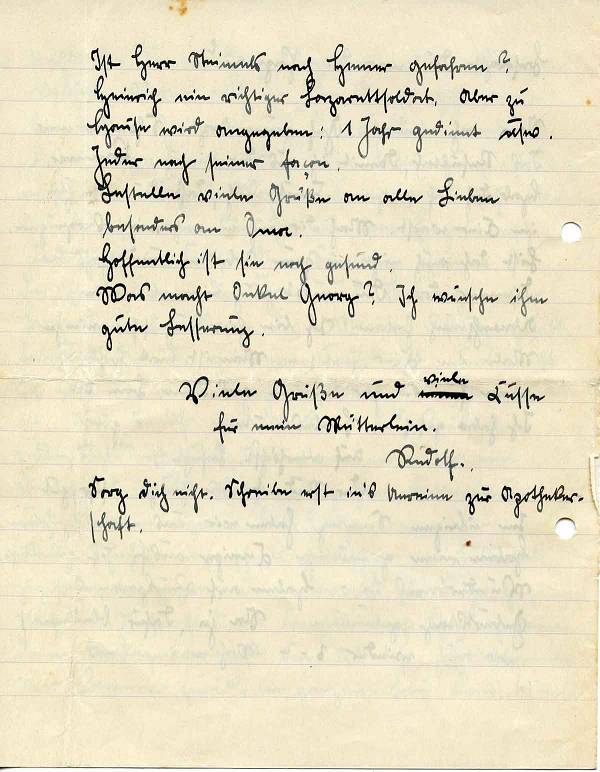 Ist Herr Steimels nach Hennef gefahren?
Heinrich ein richtiger Lazarettsoldat. Aber zu
Hause wird angegeben: 1 Jahr gedient usw.
Jeder nach seiner façon.
Bestelle viele Grüße an alle Lieben
besonders an Oma.
Hoffentlich ist sie noch gesund.
Was macht Onkel Georg? Ich wünsche ihm
gute Besserung.
Viele Grüße und viele Küsse
für mein Mütterlein.
Rudolf.
Sorg dich nicht. Schreibe erst in's zur Apotheker-
schaft.